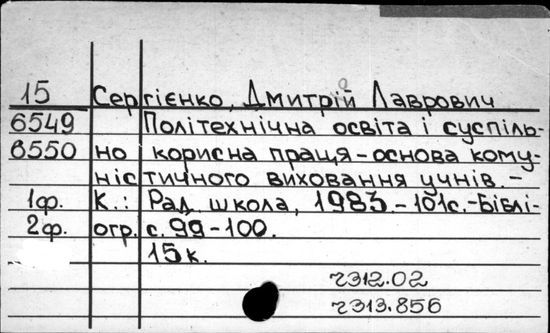 15 Сергієнко, Дмитрій Лаврович
6549 Політехнічна освіта і суспіль-
6550 но корисна праця – основа кому-
ністичного виховання учнів. –
1ф. К.: Рад. школа, 1983. – 101с. – Біблі-
2ф. огр. с. 99-100.
15к.
ч312.02
ч313.856